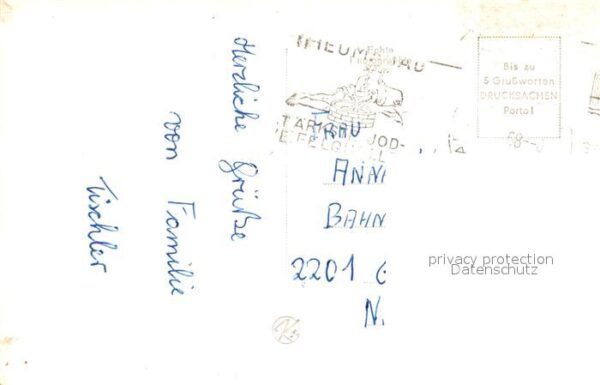 Herzliche Grüße
von Familie
Tischler
RHEUMA
Echte
JOD-
Bis zu
5 Grußworten
DRUCKSACHEN
Porto!
FRAU
ANNI
BAHN
2201 G
N.
privacy protection
Datenschutz